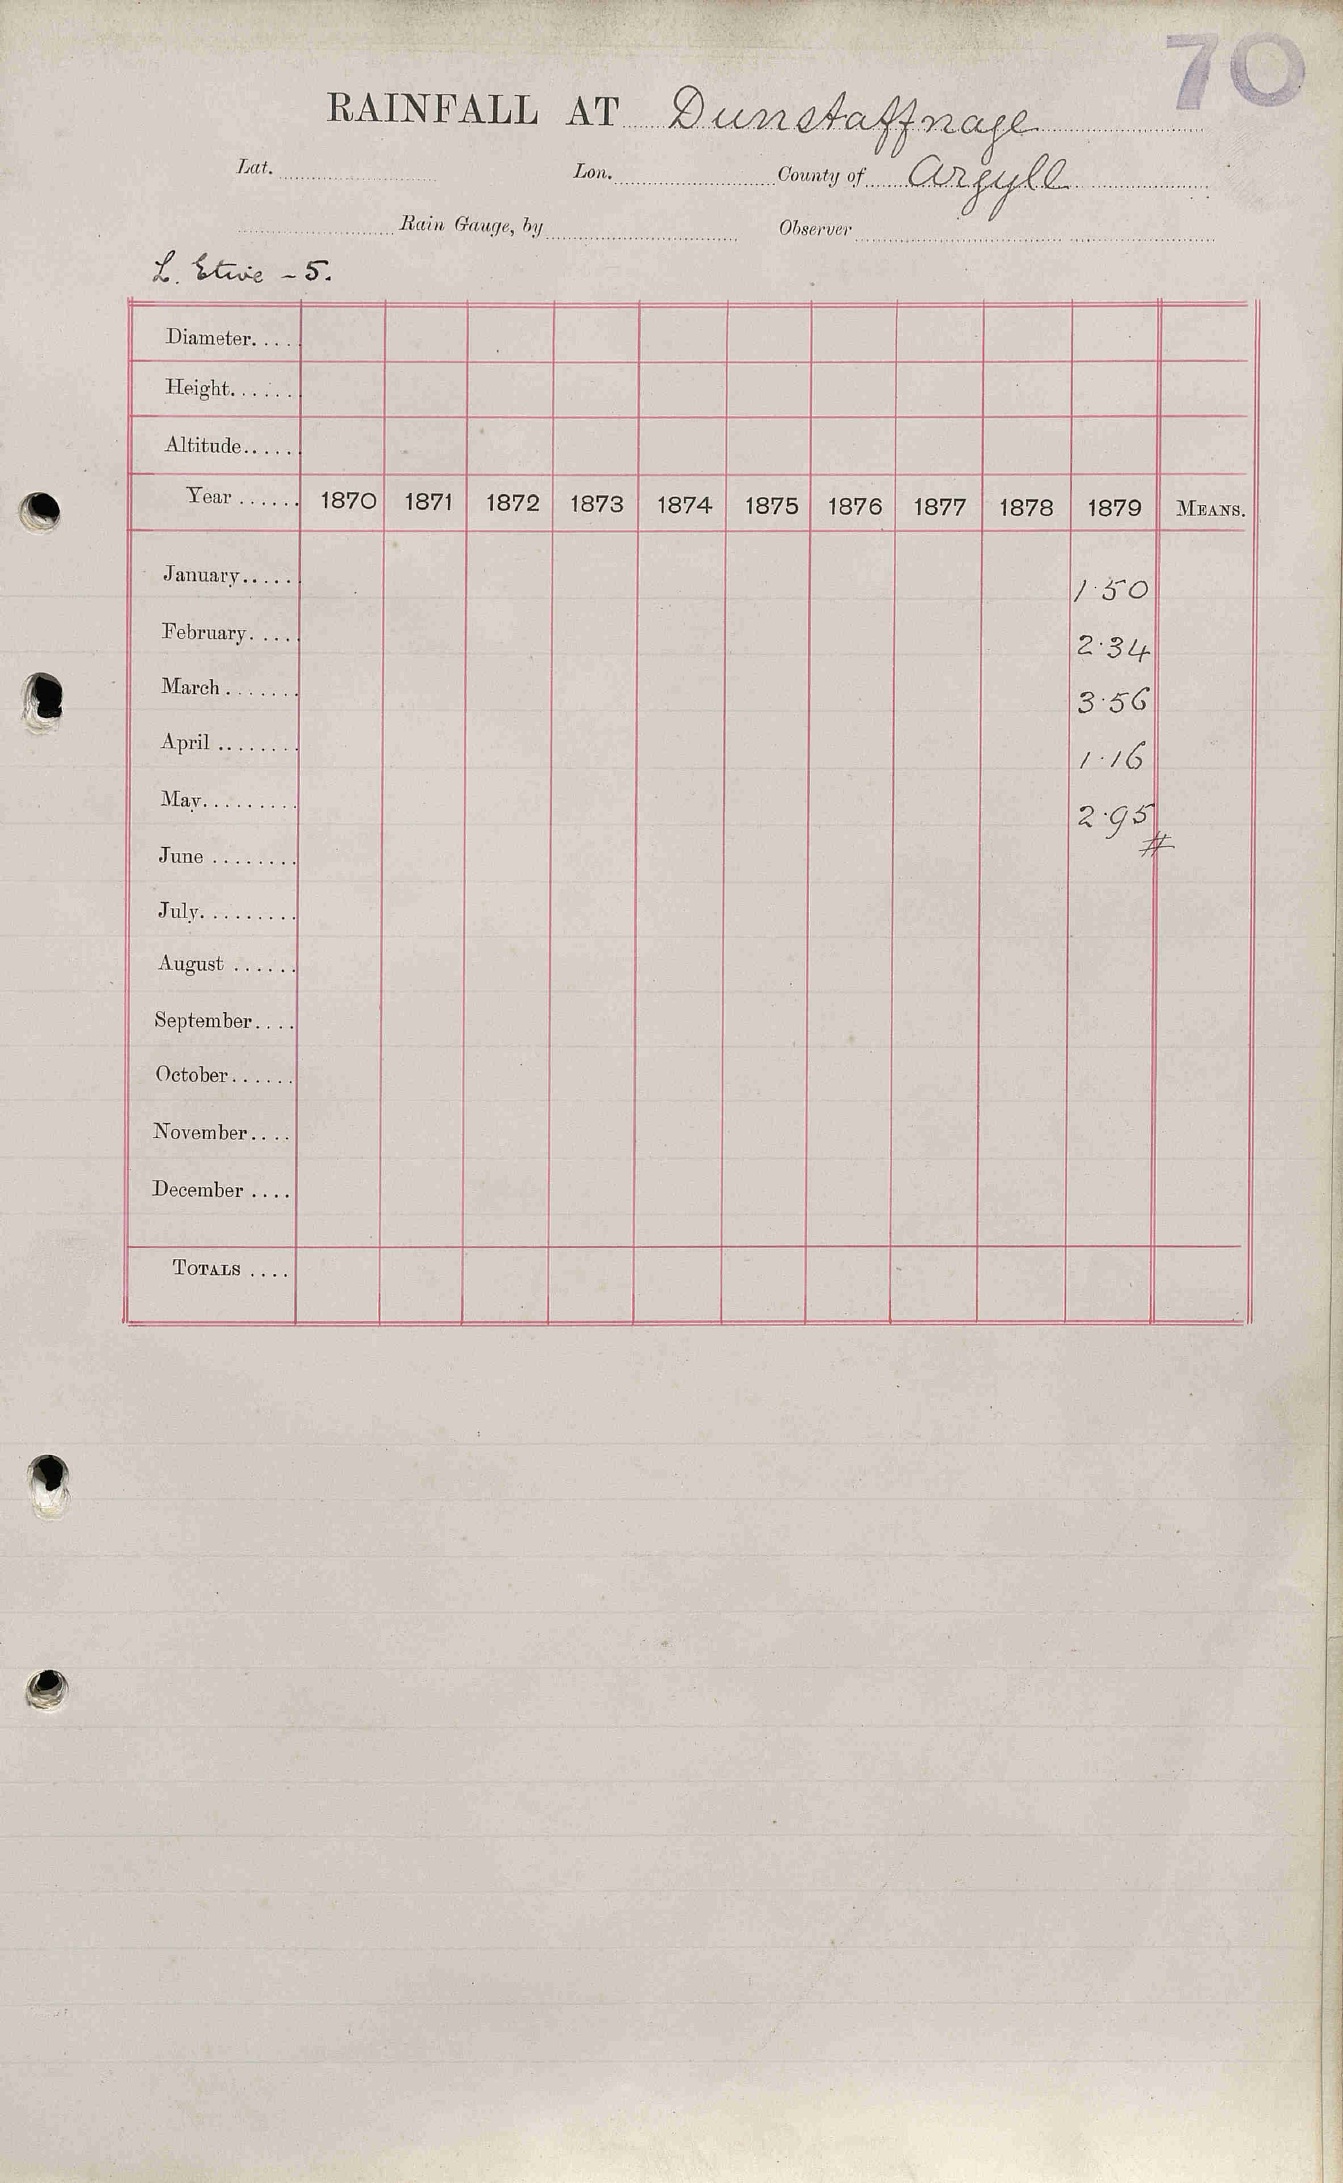 70
RAINFALL AT Dunstaffnage
Lat. Lon. County of Argyll
Rain Gauge, by Observer
L. Etive - 5.
Diameter....
Height......
Altitude.....
Year ...... 1870 1871 1872 1873 1874 1875 1876 1877 1878 1879 MEANS.
January..... 1.50
February.... 2.34
March ....... 3.56
April ........ 1.16
May......... 2.95
#
June ........
July.........
August ......
September....
October......
November....
December ....
TOTALS ....